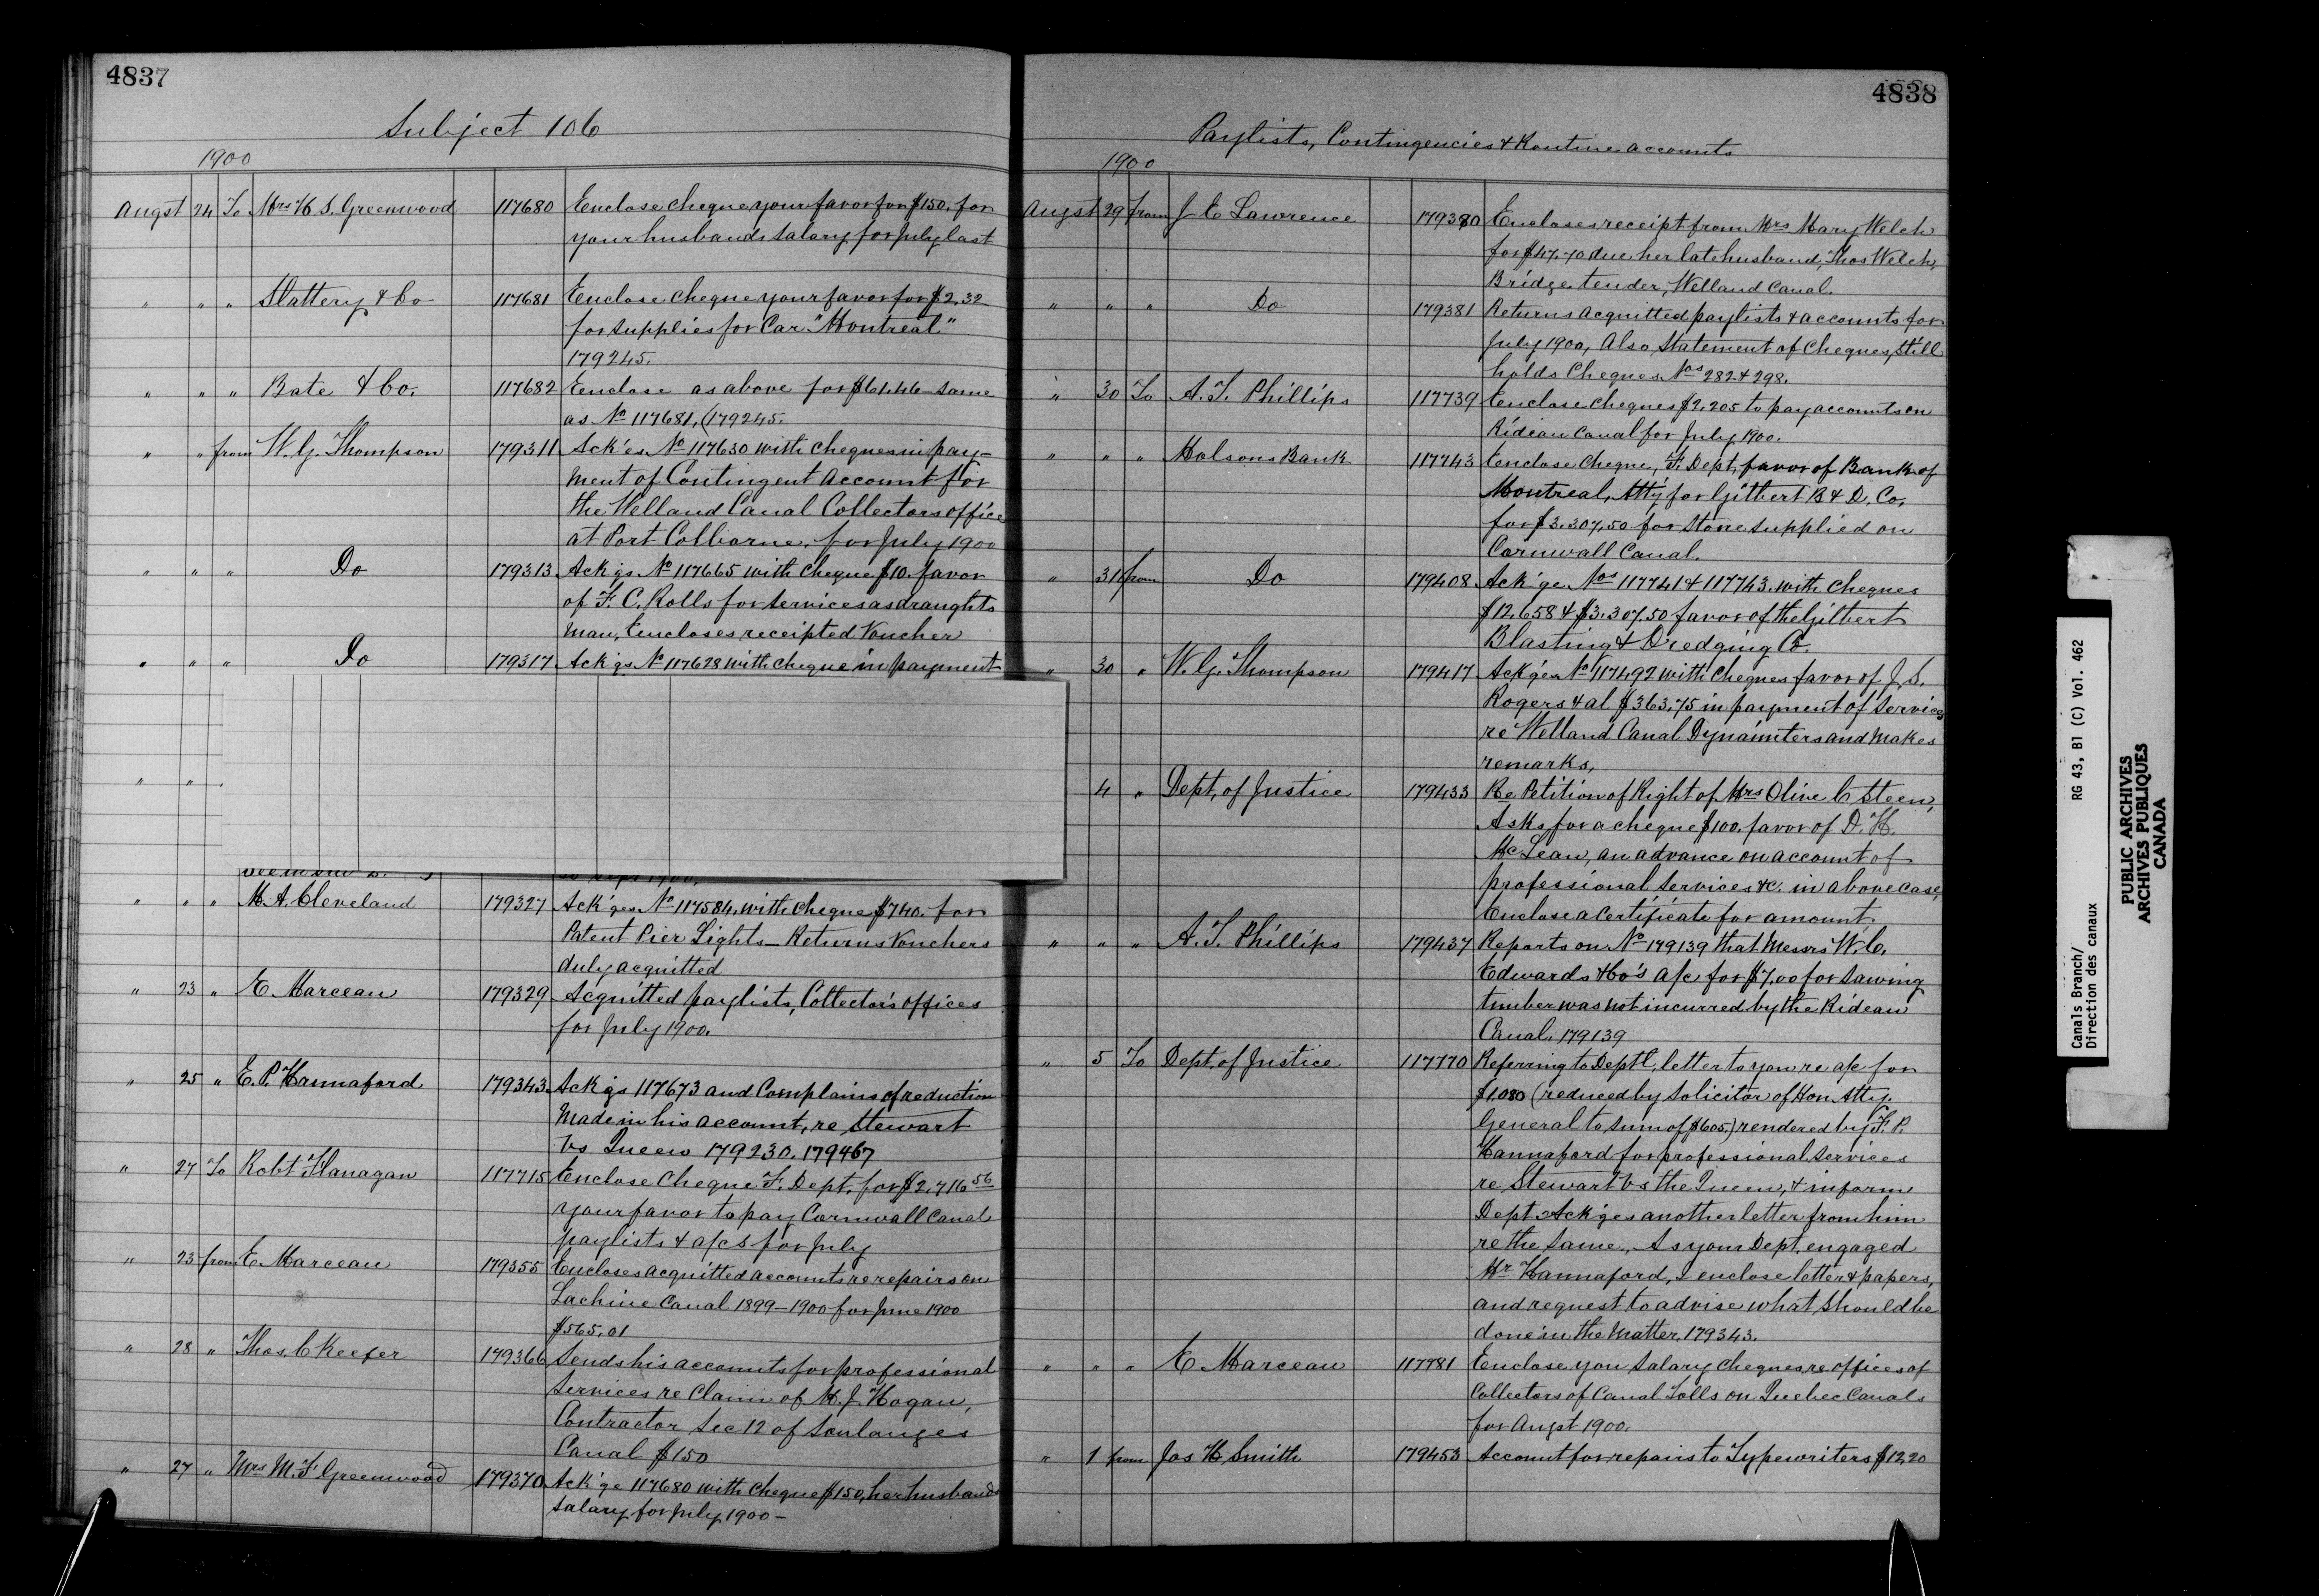 4837
Subject 106
1900
Augst 24 To Mrs H. S. Greenwood 117680 Enclose cheque your favor for $150. for
your husbands Salary for July last
" " " Slattery & Co 117681 Enclose cheque your favor for $2.32
for supplies for Car "Montreal"
179245.
" " " Bate & Co. 117682 Enclose as above for $61.46 - same
as No 117681, (179245.
" " from W. G. Thompson 179311 Ack'es No 117630 with cheques in pay-
ment of Contingent Account for
the Welland Canal Collectors office
at Port Colborne, for July 1900
" " " Do 179313 Ack'gs No 117665 with cheque $10. favor
of F. C. Rolls for services as draughts
man, Encloses receipted Voucher
" " " Do 179317 Ack'gs No 117628 with cheque in payment
" "
" " " M. A. Cleveland 179327 Ack'ges No 117584, with cheque $740. for
Patent Pier Lights - Returns Vouchers
duly acquitted
" 23 " E. Marceau 179329 Acquitted paylists, Collector's offices
for July 1900.
" 25 " E. P. Hannaford 179343 Ack'gs 117673 and Complains of reduction
Made in his account, re Stewart
vs Queen 179230. 179467
" 27 To Robt Flanagan 117715 Enclose Cheque F. Dept. for $2,716 56
your favor to pay Cornwall Canal
paylists & a/cs for July
" 23 from E. Marceau 179355 Encloses acquitted accounts re repairs on
Lachine Canal 1899-1900 for June 1900
$565.01
" 28 " Thos. C Keefer 179366 Sends his accounts for professional
Services re Claim of M. J. Hogan,
Contractor Sec 12 of Soulanges
Canal $150
" 27 " Mrs M. F. Greenwood 179370 Ack'ge 117680 with cheque $150, her husbands
Salary for July 1900 -
4838
Paylists, Contingencies & Routine accounts
1900
Augst 29 from J E Lawrence 179380 Encloses receipt from Mrs Mary Welch
for $47.70 due her late husband, Thos Welch,
Bridge tender, Welland Canal.
" " " Do 179381 Returns acquitted paylists & accounts for
July 1900, Also Statement of Cheques, Still
holds Cheques Nos 282 & 298.
" 30 To A. T. Phillips 117739 Enclose cheques $2,205 to pay accounts on
Rideau Canal for July 1900.
" " " Molsons Bank 117743 Enclose Cheque, F. Dept, favor of Bank of
Montreal, Att'y for Gilbert B & D. Co,
for $3,307.50 for stone supplied on
Cornwall Canal.
" 31 from Do 179408 Ack'ge Nos 117741 & 117743, with cheques
$12,658 & $3,307.50 favor of the Gilbert
Blasting & Dredging Co.
" 30 " W. G. Thompson 179417 Ack'ges No 117492 with cheques favor of J. S.
Rogers & al $363.75 in payment of services
re Welland Canal Dynamiters and Makes
remarks,
4 " Dept, of Justice 179433 Re Petition of Right of Mrs Olive C Steen,
Asks for a cheque $100. favor of D. H.
McLean, an advance on account of
professional Services &c. in above case,
Enclose a certificate for amount,
" " " A. T. Phillips 179437 Reports on No 179139 that Messrs W. C.
Edwards & Co's a/c for $7.00 for sawing
timber was not incurred by the Rideau
Canal. 179139
" 5 To Dept, of Justice 117770 Referring to Dept'l, letter to you re a/c for
$1,080 (reduced by solicitor of Hon. Atty.
General to sum of $605.) rendered by F. P.
Hannaford for professional Services
re Stewart vs the Queen, & inform
Dept Ack'ges another letter from him
re the same, As your Dept, engaged
Mr Hannaford, I enclose letter & papers,
and request to advise what should be
done in the Matter, 179343.
" " " E. Marceau 117781 Enclose you Salary cheques, re offices of
Collectors of Canal Tolls on Quebec Canals
for Augst 1900.
" 1 from Jas H. Smith 179453 Account for repairs to Typewriters $12.20
Canals Branch/ RG 43, B1 (C) Vol. 462
Direction des canaux
PUBLIC ARCHIVES
ARCHIVES PUBLIQUES
CANADA